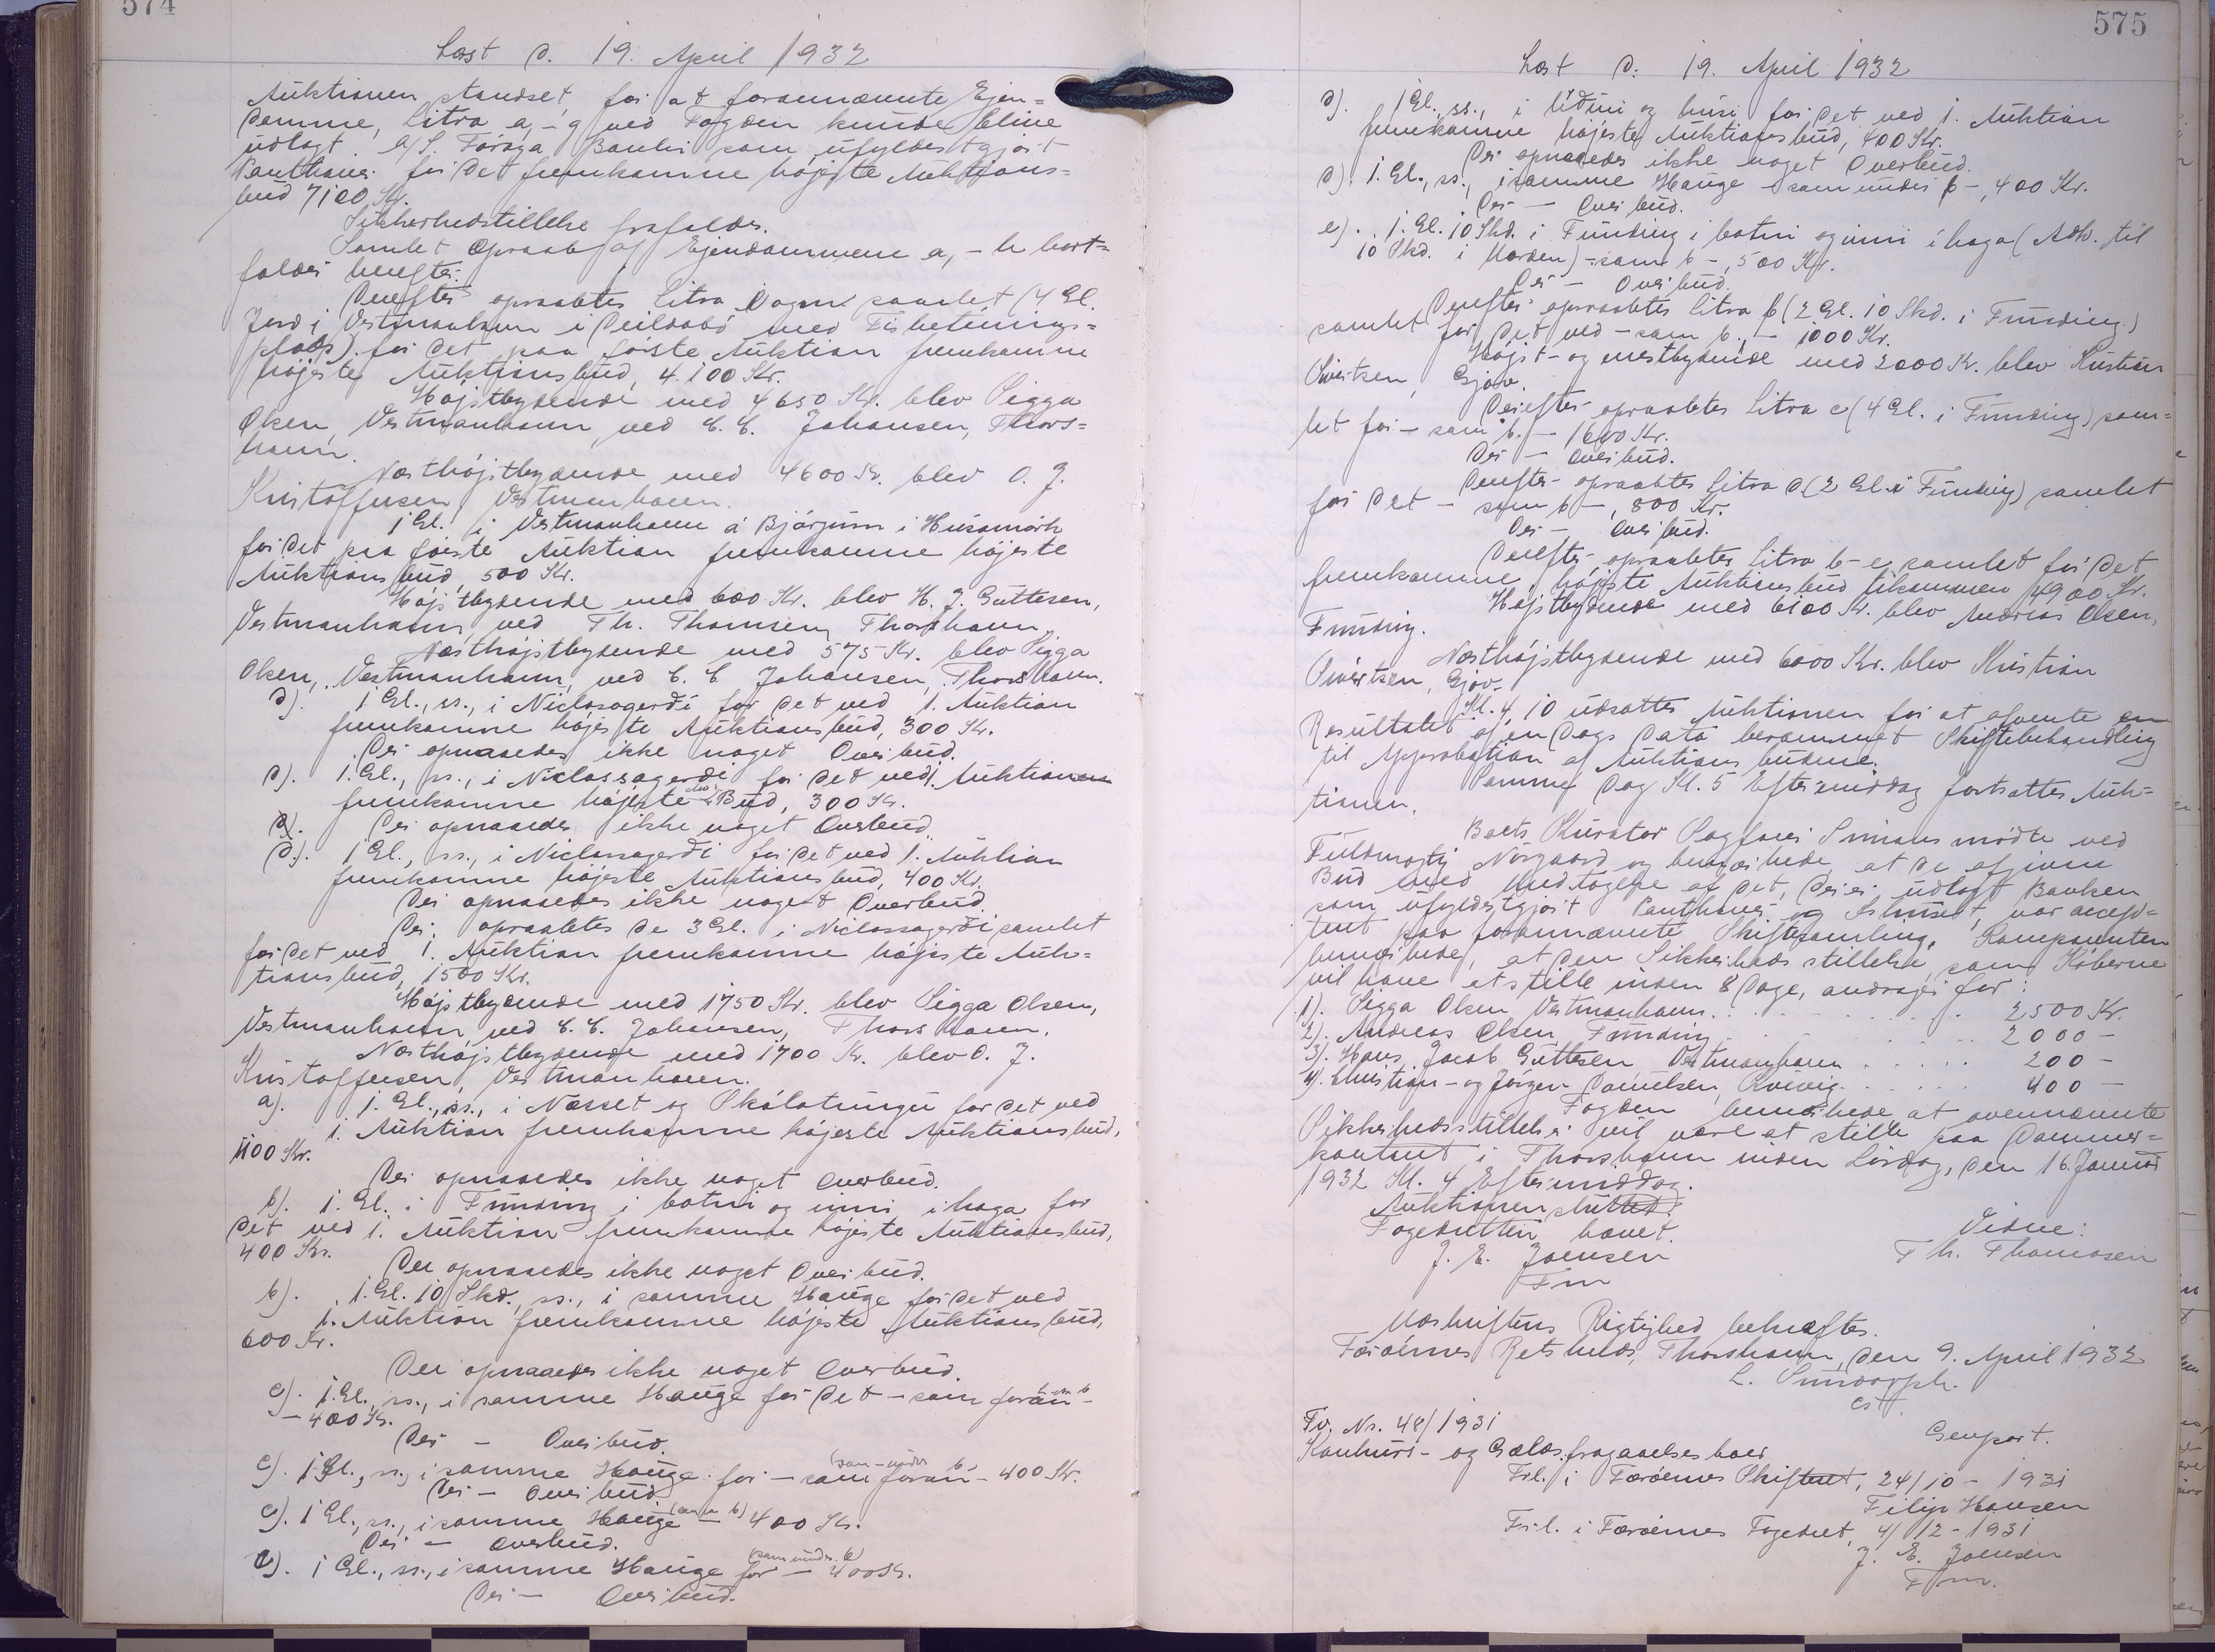 574
Læst d. 19. April 1932
Auktionen standset, for at forannævnte Ejen=
domme, Litra a, - g ved Fogden kunde blive
udlagt A/S. Føroya Banki som ufyldestgjort
Panthaver for det fremkomne højeste Auktions=
bud 7100 Kr.
Sikkerhedstillelse frafaldes.
Samlet Opraab af Ejendommene a, - h bort=
falder herefter.
Derefter opraabtes Litra samlet (4 Gl.
Jord i Vestmanhavn i Deildabø med Fisketørrings=
plads). for det paa første Auktion fremkomne
højeste Auktionsbud, 4.100 Kr.
Højstbydende med 4650 Kr. blev Sigga
Olsen, Vestmanhavn, ved C. C. Johansen, Thors=
havn.
Næsthøjstbydende med 4600 Kr. blev O. J.
Kristoffersen, Vestmanhavn.
1 Gl. i Vestmanhavn á Bjørgum i Húsamørk
for det paa første Auktion fremkomne højeste
Auktionsbud, 500 Kr.
Højstbydende med 600 Kr. blev H. J. Guttesen,
Vestmanhavn, ved Th. Thomsen, Thorshavn.
Næsthøjstbydende med 575 Kr. blev Sigga
Olsen, Vestmanhavn, ved C. C Johansen, Thorshavn.
d). 1 Gl., ss., i Niclasagerdi for det ved 1. Auktion
fremkomne højeste Auktionsbud, 300 Kr.
Der opnaaedes ikke noget Overbud.
d). 1. Gl., ss., i Niclassagerdi for det ved 1. Auktionen
fremkomne højeste Bud, 300 Kr.
d). Der opnaaedes ikke noget Overbud.
d). 1 Gl., ss., i Niclassagerdi for det ved 1. Auktion
fremkomne højeste Auktionsbud, 400 Kr.
Der opnaaedes ikke noget Overbud.
Der opraabtes de 3 Gl. i Niclassagerdi samlet
for det ved 1. Auktion fremkomne højeste Auk=
tionsbud, 1500 Kr.
Højstbydende med 1750 Kr. blev Sigga Olsen,
Vestmanhavn, ved C. C. Johansen, Thorshavn.
Næsthøjstbydende med 1700 Kr. blev O. J.
Kristoffersen, Vestmanhavn.
a). 1. Gl., ss., i Nesset og Skálatungu for det ved
1. Auktion fremkomne højeste Auktionsbud,
1100 Kr.
Der opnaaedes ikke noget Overbud.
b). 1. Gl. i Funding i botni og inni i haga for
det ved 1. Auktion fremkomne højeste Auktionsbud,
400 Kr.
Der opnaaedes ikke noget Overbud.
b). 1. Gl. 10 Skd., ss., i samme Hauge for det ved
1. Auktion fremkomne højeste Auktionsbud,
600 Kr.
Der opnaaedes ikke noget Overbud.
c). 1. Gl., ss., i samme Hauge for det - som foran -
- 400 Kr.
Der - Overbud.
c). 1 Gl., ss., i samme Hauge for - (som under b) som foran - 400 Kr.
Der - Overbud.
c). 1 Gl., ss., i samme Hauge - 400 Kr.
Der - Overbud.
c). 1 Gl., ss., i samme Hauge for (som under b) - 400 Kr.
Der - Overbud.
575
Læst d. 19. April 1932
d). 1 Gl., ss., i líðini og húsi for det ved 1. Auktion
fremkomne højeste Auktionsbud, 400 Kr.
Der opnaaedes ikke noget Overbud.
d). 1. Gl., ss., i samme Hauge - som under b -, 400 Kr.
Der - Overbud.
e). 1. Gl. 10 Skd. i Funding i botni og inni í haga (Adk. til
10 Skd. i Marken) - som b -, 500 Kr.
Der - Overbud.
Derefter opraabtes Litra b (2 Gl. 10 Skd. i Funding.)
samlet for det ved - som b., - 1000 Kr.
Højst- og mestbydende med 2000 Kr. blev Kristian
Sivertsen, Gjov.
Derefter opraabtes Litra c (4 Gl. i Funding) sam=
let for - som b. - 1600 Kr.
Der - Overbud.
Derefter opraabtes Litra d (2 Gl. i Funding) samlet
for det - som b -, 800 Kr.
Der - Overbud.
Derefter opraabtes Litra b - e samlet for det
fremkomne højeste Auktionsbud tilsammen 4900 Kr.
Højstbydende med 6100 Kr. blev Andrias Olsen,
Funding.
Næsthøjstbydende med 6000 Kr. blev Kristian
Sivertsen, Gjov.
Kl. 4,10 udsattes Auktionen for at afvente en
Resultatet af en Dags Dato berammet Skiftebehandling
til Approbation af Auktionsbudene.
Samme Dag Kl. 5 Eftermiddag fortsattes Auk=
tionen.
Boets Kurator Sagfører Smians mødte ved
Fuldmægtig Nørgaard og bemærkede, at de afgivne
Bud med Undtagelse af det, der er udlagt Banken
som ufyldestgjort Panthaver og Ishuset, var accep=
teret paa forannævnte Skiftesamling. Komparenten
bemærkede, at den Sikkerhedsstillelse, som Køberne
vil have at stille inden 8 Dage, andrager for:
1). Sigga Olsen, Vestmanhavn . . . . . . . 2500 Kr.
2). Andreas Olsen, Funding . . . . . . . 2000 -
3). Hans Jacob Guttesen, Vestmanhavn . . . . . 200 -
4). Christian - og Jørgen Danielsen, Kvivig . . . . . 400 -
Fogden bemærkede, at ovennævnte
Sikkerhedsstillelser vil være at stille paa Dommer=
kontoret i Thorshavn inden Lørdag, den 16. Januar
1932 Kl. 4 Eftermiddag.
Auktionen sluttet.
Fogedretten hævet.
J. E. Joensen
Fm
Vidne:
Th. Thomasen
Udskriftens Rigtighed bekræftes.
Færøernes Retskreds, Thorshavn, den 9. April 1932
cst.
Fv. Nr. 48/1931
Genpart.
Konkurs- og Gælds.fragaaelsesboer
Frl. i Færøernes Skifteret, 24/10 - 1931
Filip Hansen
Frl. i Færøernes Fogedret, 4/12 - 1931
J. E. Joensen
Fm.